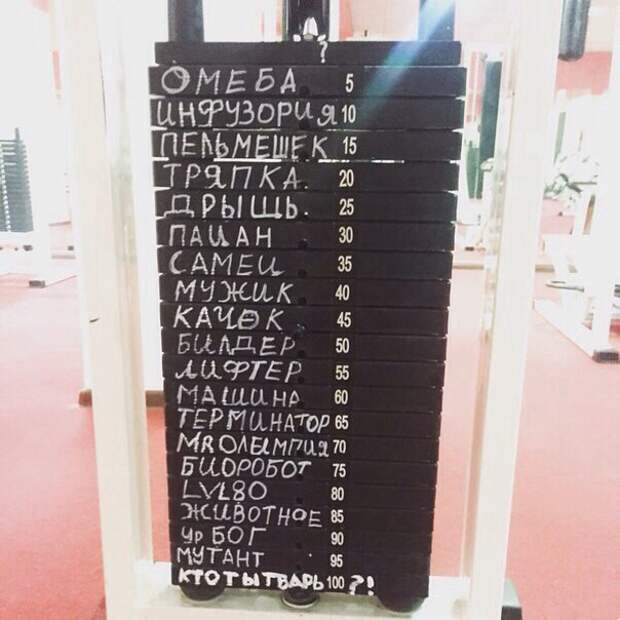 ?
ОМЕБА 5
ИНФУЗОРИЯ 10
ПЕЛЬМЕШЕК 15
ТРЯПКА 20
ДРЫЩЬ 25
ПАЦАН 30
САМЕЦ 35
МУЖИК 40
КАЧОК 45
БИЛДЕР 50
ЛИФТЕР 55
МАШИНА 60
ТЕРМИНАТОР 65
MR ОЛЕМПИЯ 70
БИОРОБОТ 75
LVL80 80
ЖИВОТНОЕ 85
УР БОГ 90
МУТАНТ 95
КТО ТЫ ТВАРЬ 100 ?!